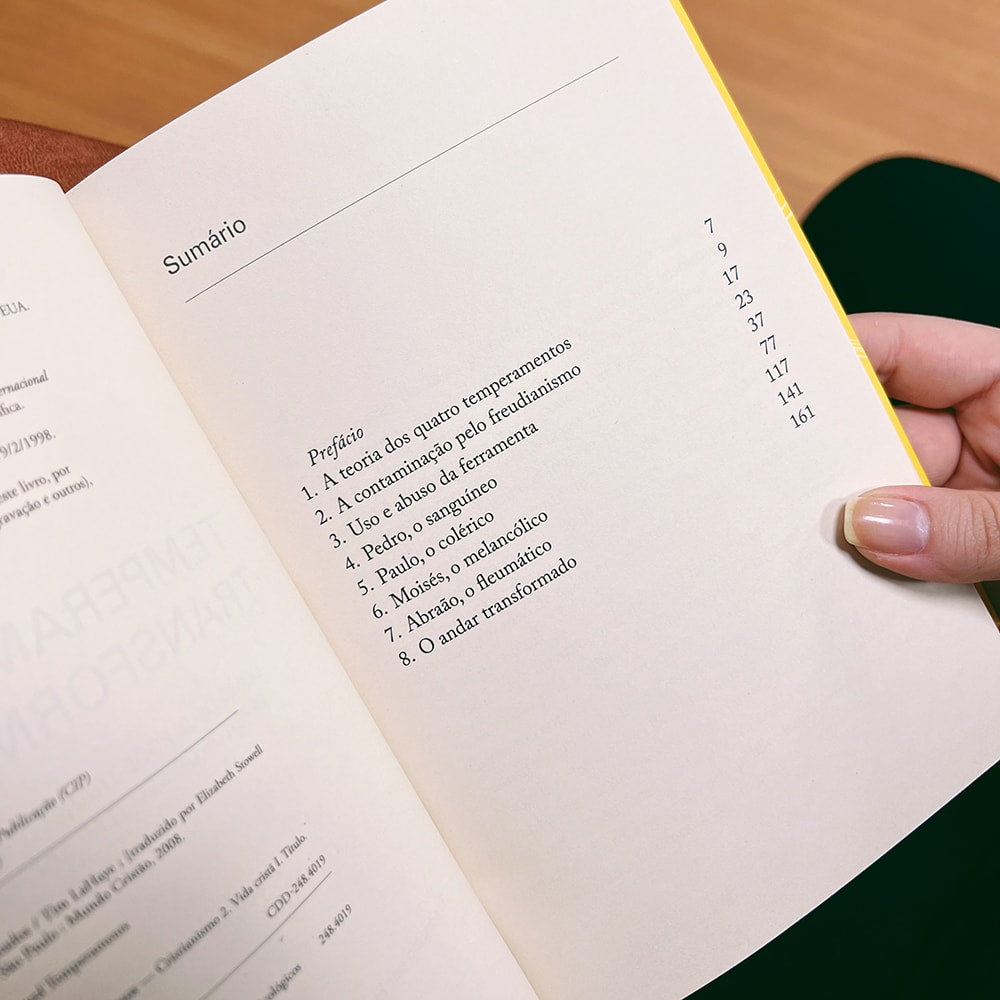 EUA.
9/2/1998.
este livro, por
gravação e outros),
Publicação (CIP)
Tim LaHaye ; [traduzido por Elizabeth Stowell
São Paulo : Mundo Cristão, 2008.
Cristianismo 2. Vida cristã I. Título.
CDD-248.4019
248.4019
Sumário
Prefácio 7
1. A teoria dos quatro temperamentos 9
2. A contaminação pelo freudianismo 17
3. Uso e abuso da ferramenta 23
4. Pedro, o sanguíneo 37
5. Paulo, o colérico 77
6. Moisés, o melancólico 117
7. Abraão, o fleumático 141
8. O andar transformado 161